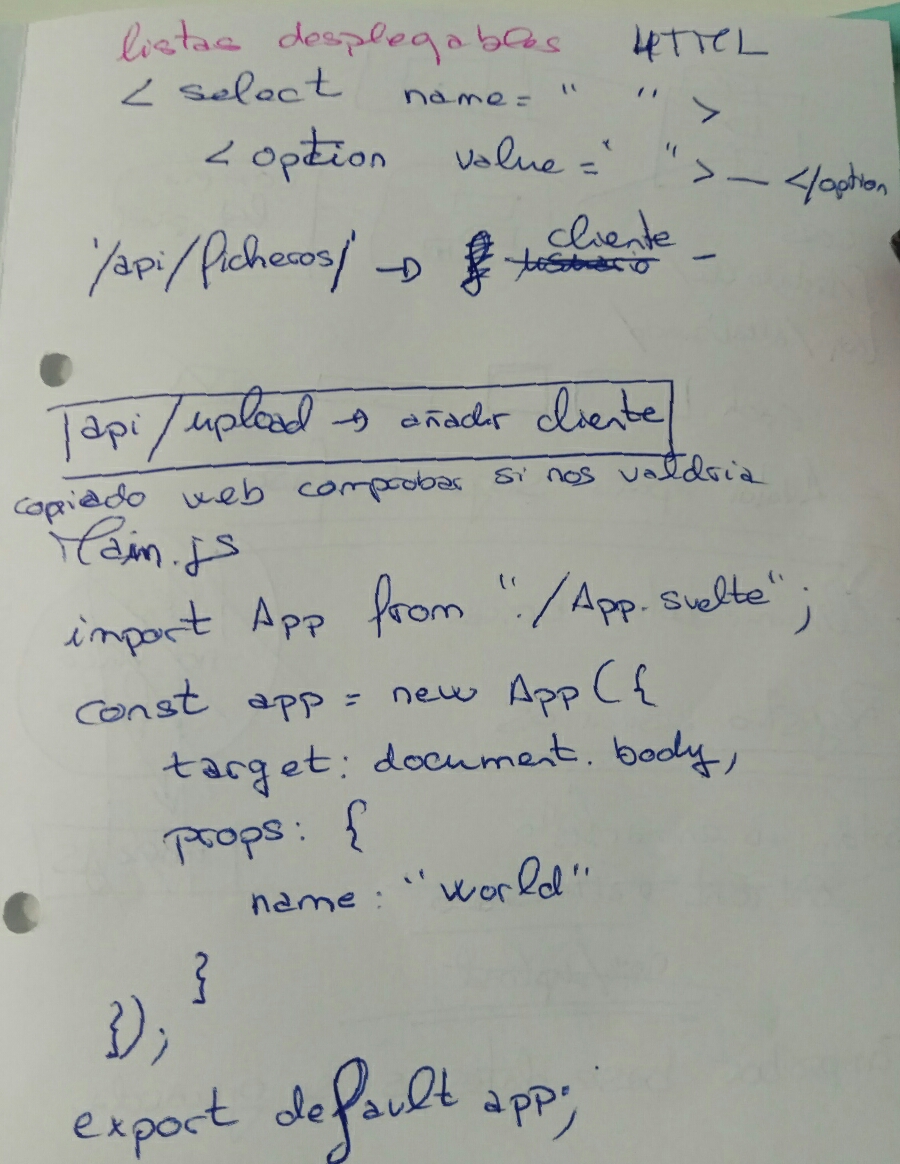 listas desplegables HTML
< select name= " " >
< option value =" "> — </option
'/api/ficheros/' → cliente –
/api/upload → añadir cliente
copiado web comprobar si nos valdria
Main.js
import App from "./App.svelte";
const app = new App({
target: document.body,
props: {
name: "world"
}
});
export default app;